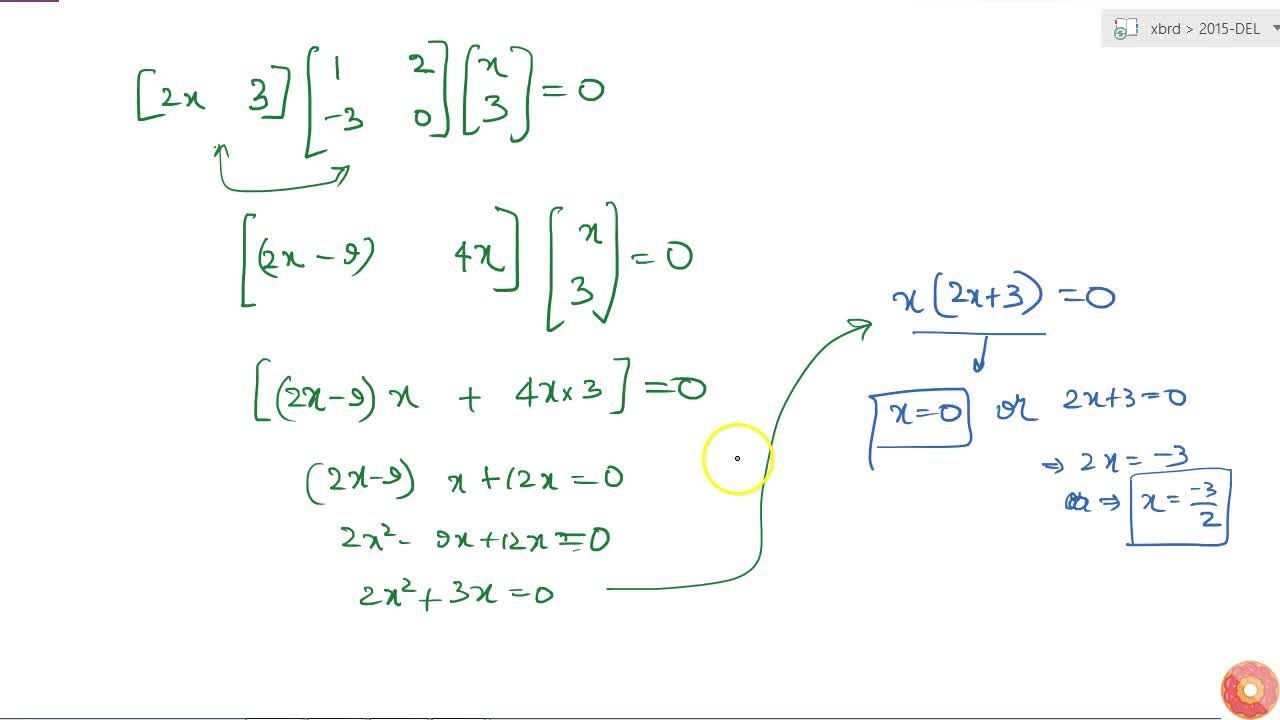 xbrd > 2015-DEL
[2x 3] [1 2 -3 0] [x 3] = 0
[(2x - 9) 4x] [x 3] = 0
[(2x-9) x + 4x × 3] = 0
(2x-9) x + 12x = 0
2x² - 9x + 12x = 0
2x² + 3x = 0
x(2x+3) = 0
x=0 or 2x+3=0
⇒ 2x = -3
⇒ x = -3/2